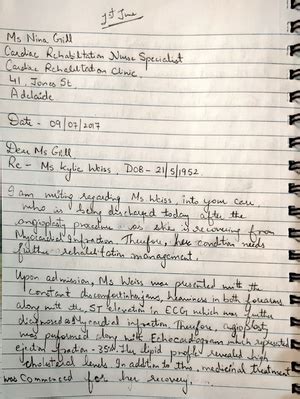 1st June
Ms Nina Grill
Cardiac Rehabilitation Nurse Specialist
Cardiac Rehabilitation Clinic.
41, Jones St
Adelaide
Date - 09/07/2017
Dear Ms Grill
Re - Ms Kylie Weiss, DOB - 21/5/1952
I am writing regarding Ms Weiss, into your care,
who is being discharged today after the
angioplasty procedure as she is recovering from
Myocardial infraction. Therefore, her condition needs
further rehabilitation management.
Upon admission, Ms Weiss was presented with the
constant discomfort, heaviness in both forearms
along with the ST elevation in ECG which was further
diagnosed as Myocardial infraction. Therefore, angioplasty
was performed along with Echocardiogram which
ejection fraction - 35%. The lipid profile revealed high
cholesterol levels. In addition to this, medicinal treatment
was commenced for her recovery.